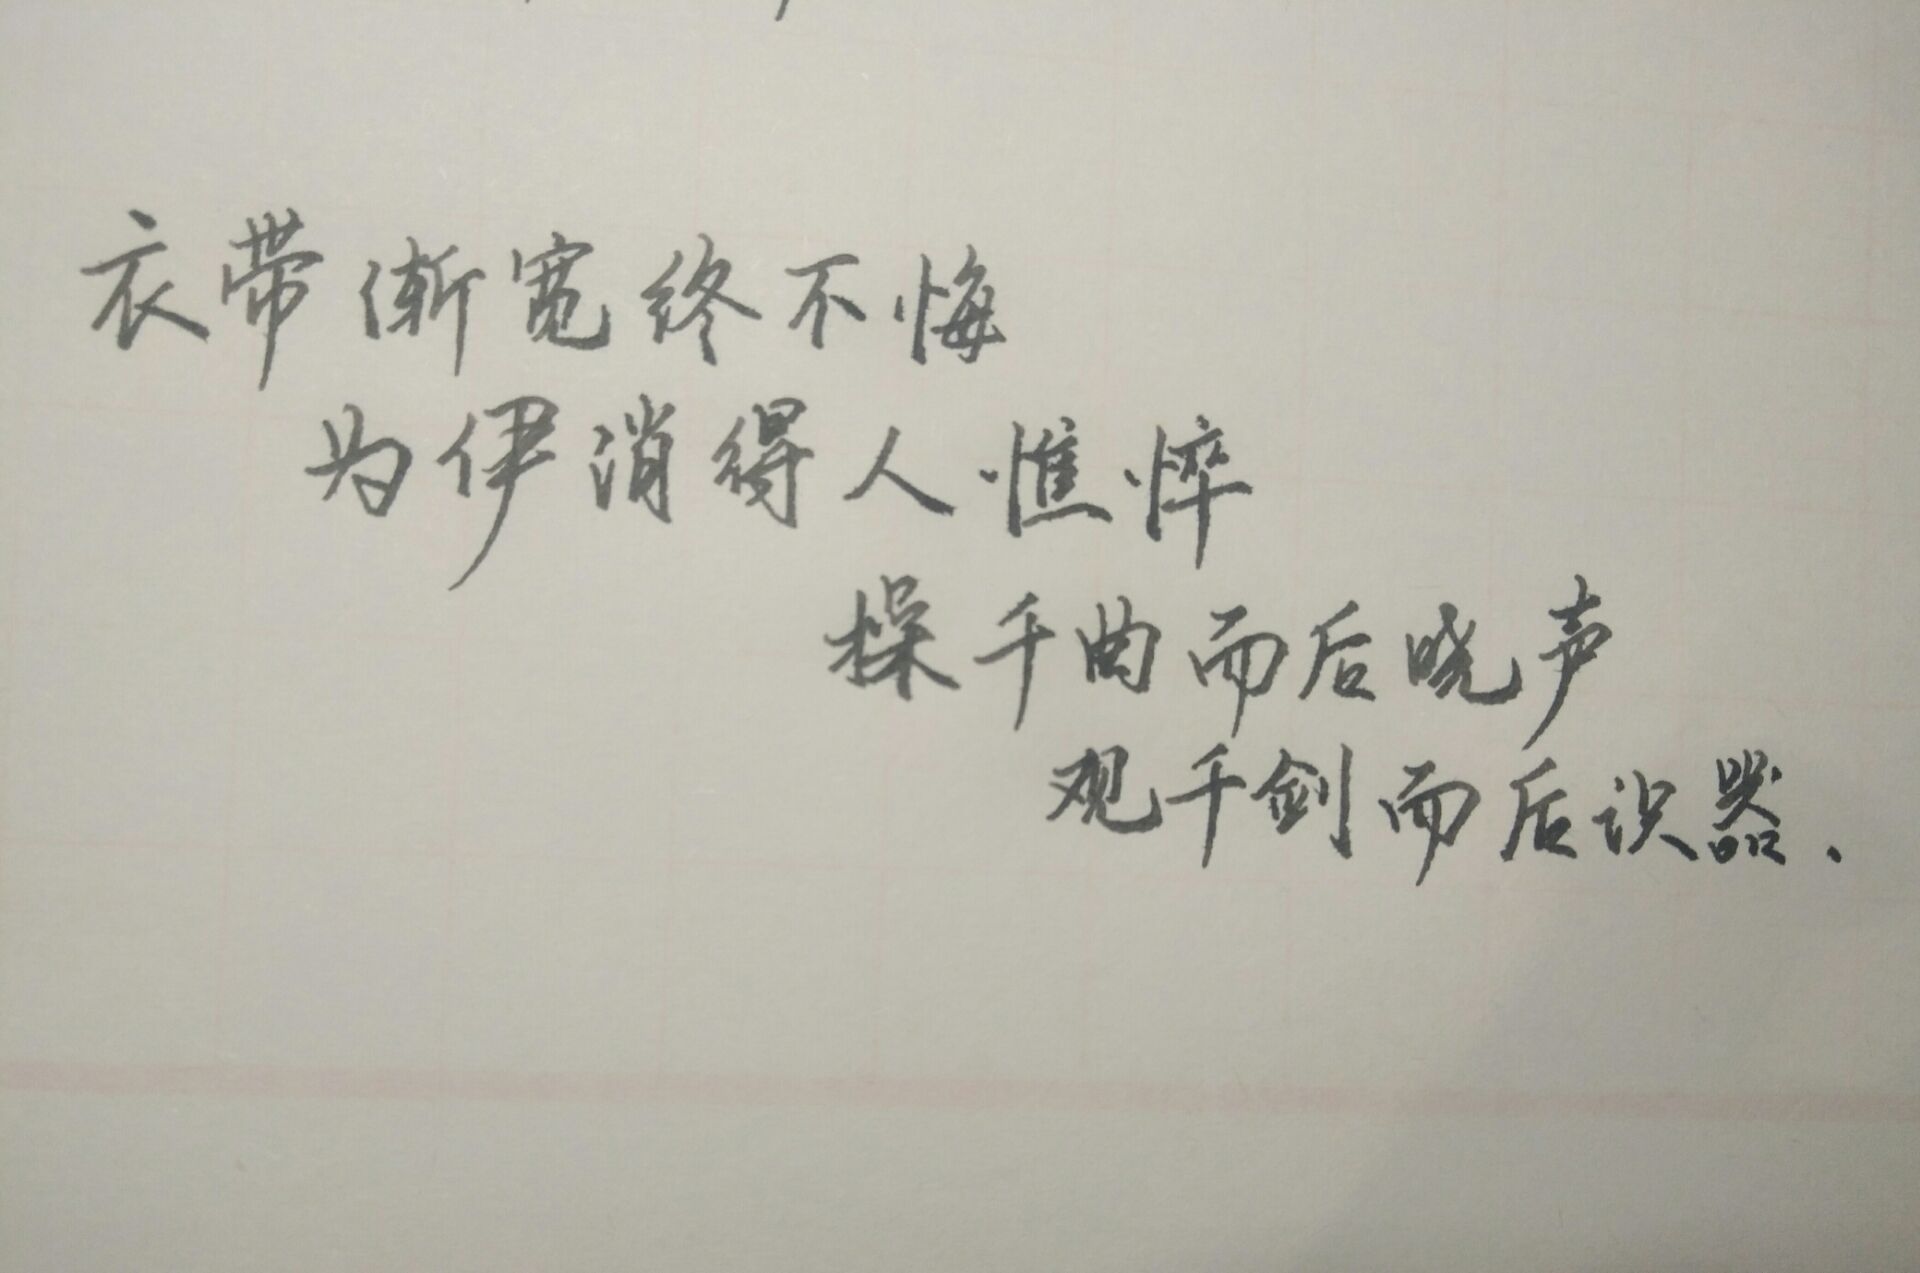 衣带渐宽终不悔
为伊消得人憔悴
操千曲而后晓声
观千剑而后识器.